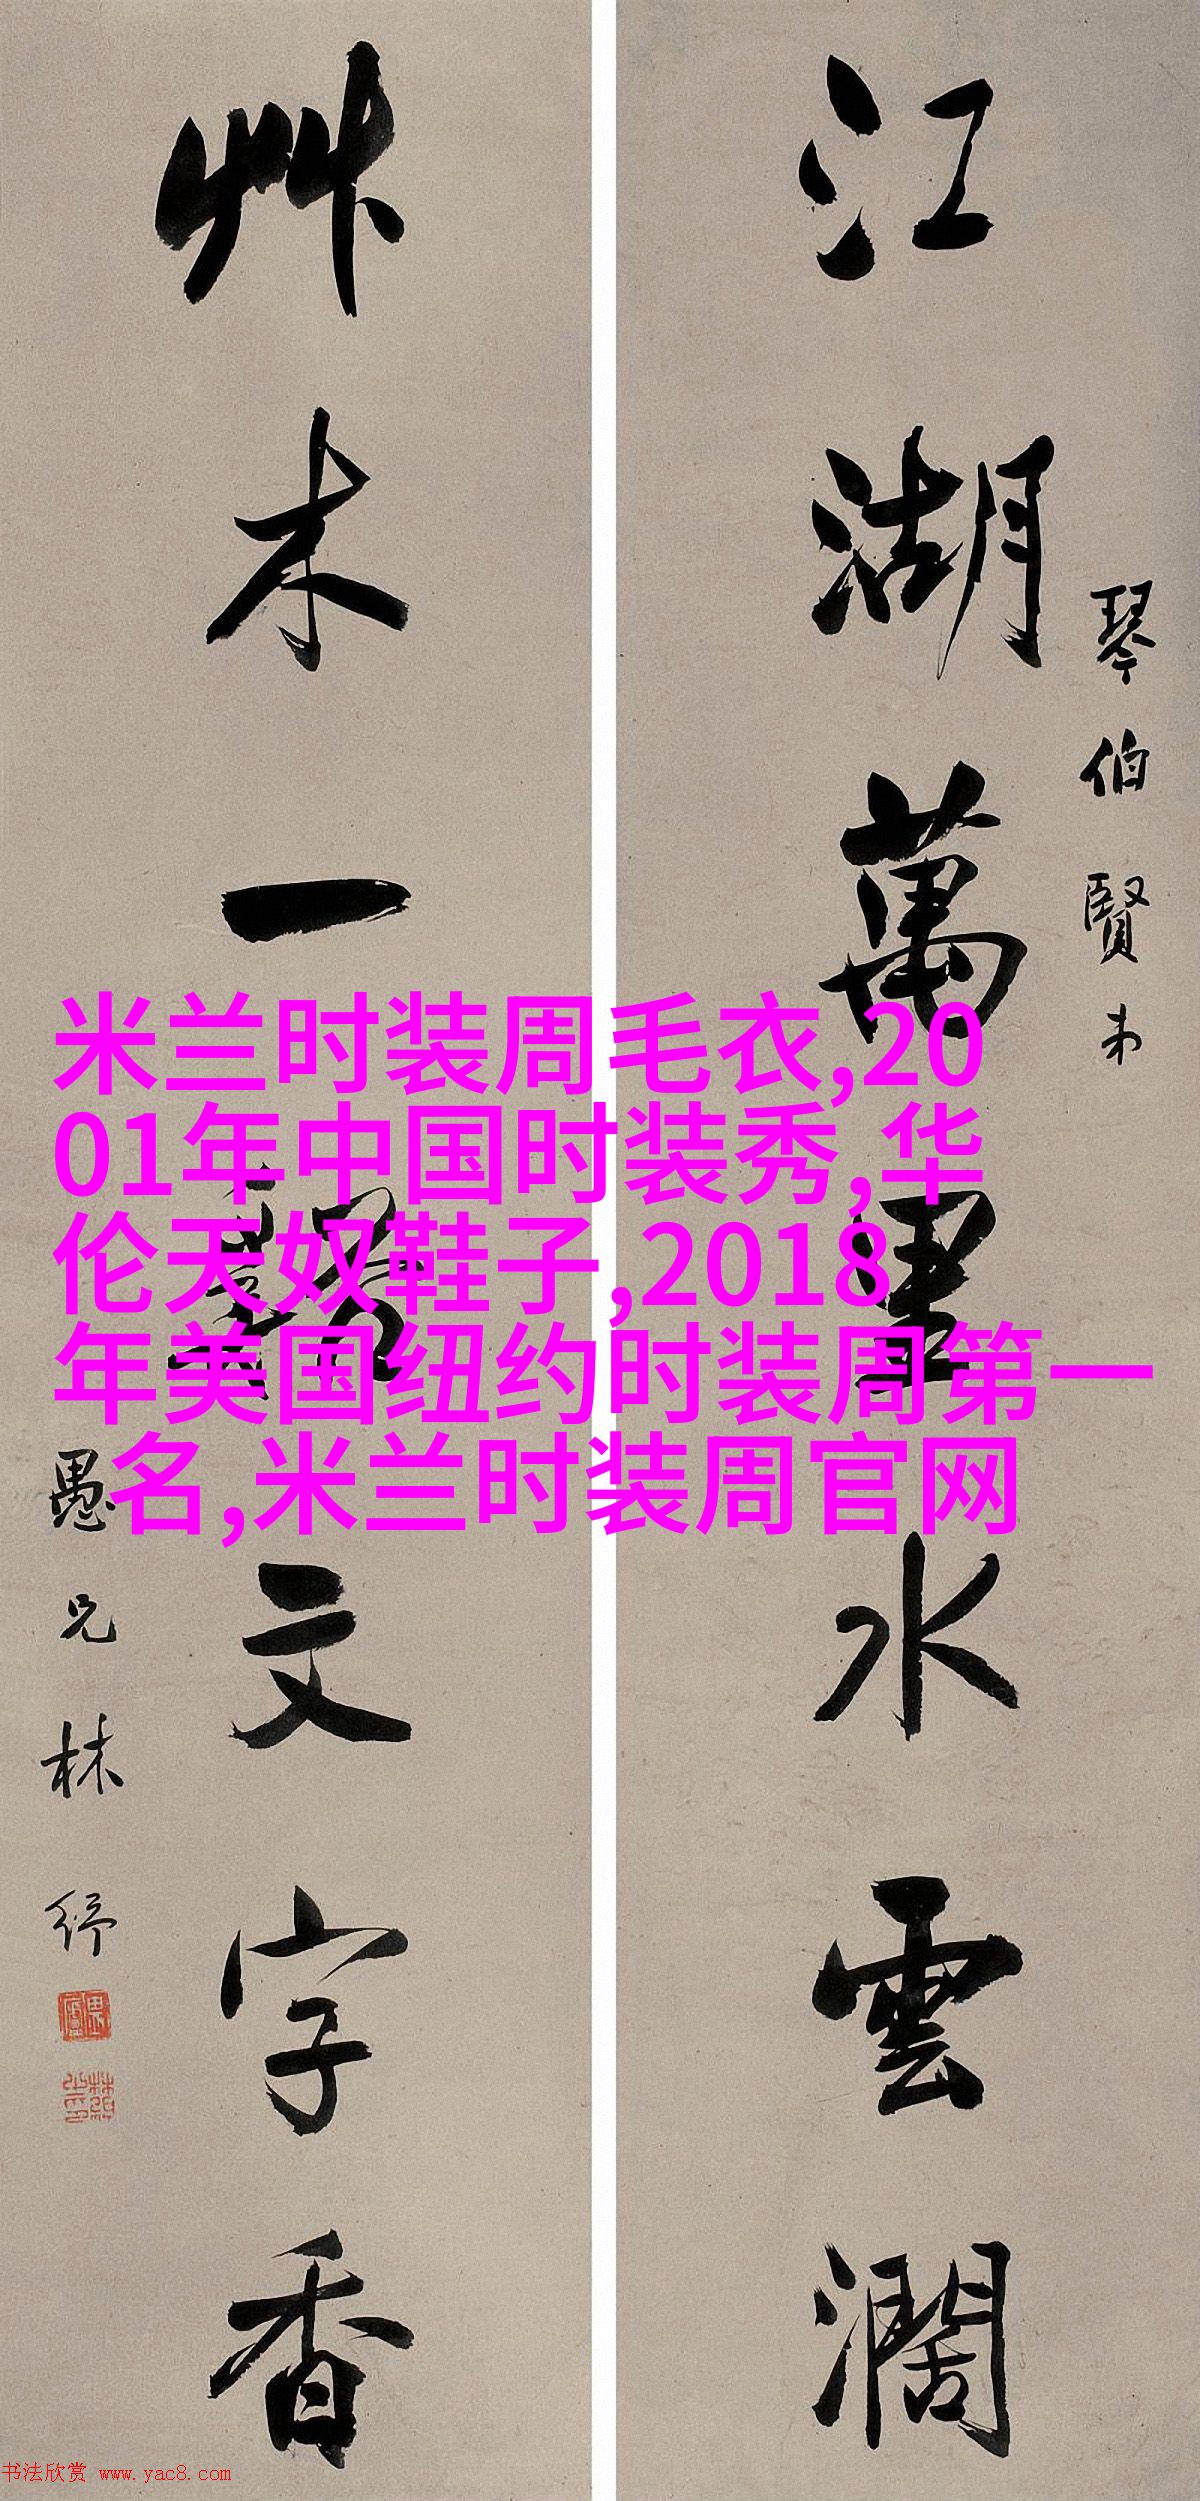 江湖萬里水雲濶
琴伯賢弟
艸木一谿文字香
愚兄林紓
畏廬
米兰时装周毛衣,20
01年中国时装秀,华
伦天奴鞋子,2018
年美国纽约时装周第一
名,米兰时装周官网
书法欣赏 www.yac8.com